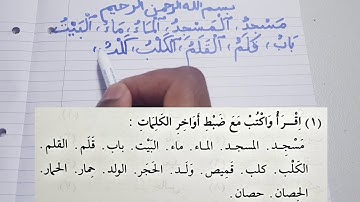 بسم الله الرحمن الرحيم
مَسْجِدٌ، اَلْمَسْجِدُ، اَلْمَاءُ، مَاءٌ، اَلْبَيْتُ،
بَابٌ، قَلَمٌ، اَلْقَلَمُ، اَلْكَلْبُ، كَلْبٌ،
(١) اِقْرَأْ وَاكْتُبْ مَعَ ضَبْطِ أَوَاخِرِ الكَلِمَاتِ :
مَسْجِد. المسجد. المـاء. ماء. البَيْت. باب. قَلَم. القلم.
الكَلْب. كلب. قَمِيص. وَلَد. الحَجَر. الولد. حِمار. الحمار.
الحِصان. حصان.